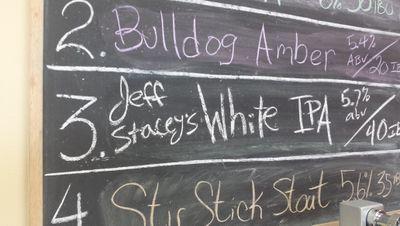 50 IBU
2. Bulldog Amber 5.4% ABV / 20 IB
3. Jeff Stacey's White IPA 5.7% abv / 40 IB
4 Stir Stick Stout 5.6% 35